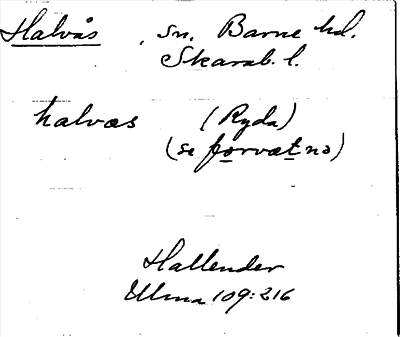 Halvås , sn. Barne hd.
Skarab. l.
halvas (Ryda)
(se forvætno)
Hallender
Ulma 109:216